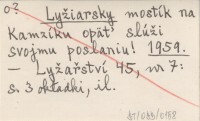 o?
Lyžiarsky mostík na
Kamzíku opäť slúži
svojmu poslaniu! 1959.
– Lyžařství 45, nr 7:
s. 3 okładki, il.